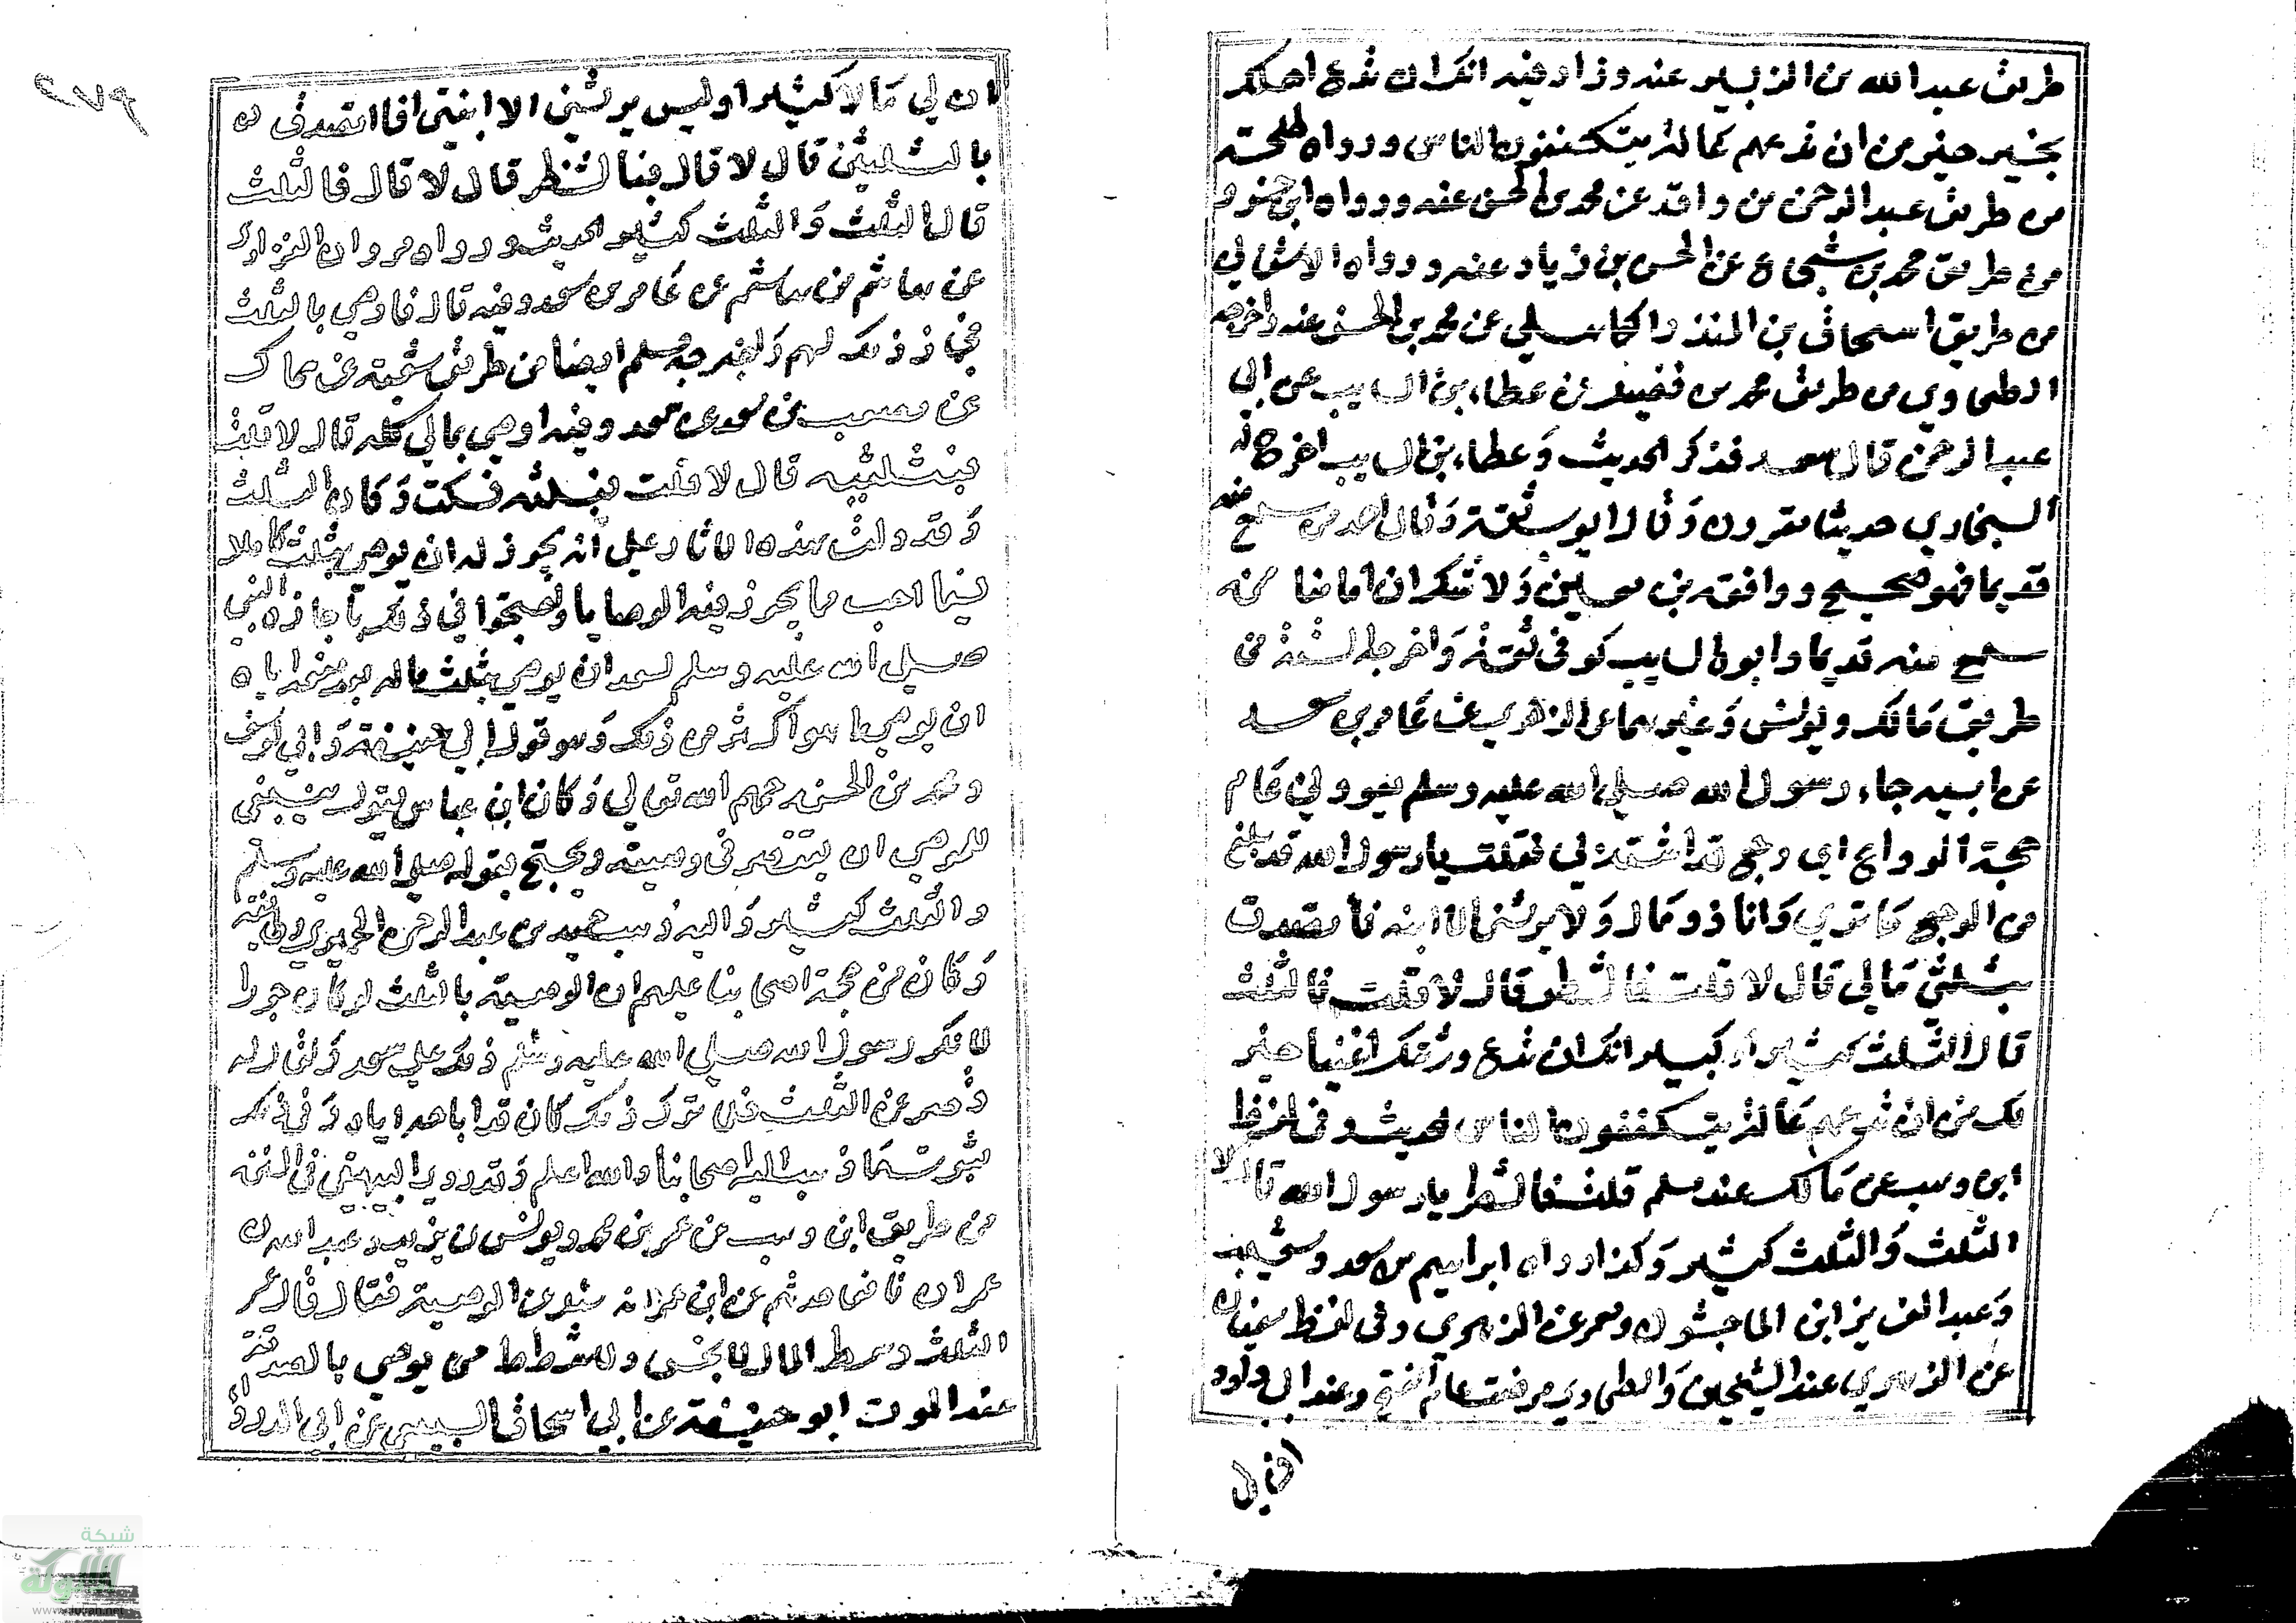 طريق عبد الله بن الزبير عنه وزاد فيه انك ان تدع اهلك
بخير خير من ان تدعهم عالة يتكففون الناس ورواه طلحة
من طريق عبد الرحمن بن واقد عن محمد بن الحسن عنه ورواه ابن خسرو
من طريق محمد بن شجاع عن الحسن بن زياد عنه ورواه الاشناني
من طريق اسحاق بن المنذر عن محمد بن الحسن عنه واخرجه
الطحاوي من طريق محمد بن فضيل عن عطاء بن السايب عن ابي
عبد الرحمن قال سعد فذكر الحديث وعطاء بن السايب اخرج له
البخاري حديثا مقرون وقال ابو ثقة وقال احمد من سمع منه
قديما فهو صحيح ووافقه بن معين ولا شك ان امامنا ممن
سمع منه قديما وابوه السايب كوفي ثقة واخرجه الستة من
طريق مالك ويونس وغيرهما عن الزهري عن عامر بن سعد
عن ابيه جاء رسول الله صلى الله عليه وسلم يعودني عام
حجة الوداع اي وجع قد اشتد بي فقلت يا رسول الله قد بلغ
من الوجع ما تري وانا ذو مال ولا يرثني الا ابنة فأتصدق
بثلثي مالي قال لا قلت فالشطر قال لا قلت فالثلث
قال الثلث كثير او كبير انك ان تدع ورثتك اغنيا خير
لك من ان تدعهم عالة يتكففون الناس الحديث وفي لفظ
ابن وهب عن مالك عند مسلم قلت فالشطر يا رسول الله قال لا
الثلث والثلث كثير وكذا رواه ابراهيم بن سعد وشعيب
وعبد العزيز ابن الماجشون ومعمر عن الزهري وفي لفظ سفيان
عن الزهري عند الشيخين والطحاوي مرضت عام الفتح وعند ابي داود
ان لي
ان لي مالا كثيرا وليس يرثني الا ابنتي افاتصدق
بالثلثين قال لا قال فبالشطر قال لا قال فالثلث
قال الثلث والثلث كثير الحديث ورواه مروان الفزاري
عن هاشم بن هاشم عن عامر بن سعد وفيه قال فاوصي بالثلث
فجاز ذلك لهم واخرجه مسلم ايضا من طريق شعبة عن سماك
عن مصعب بن سعد عن سعد وفيه اوصي بمالي كله قال لا قلت
فبثلثيه قال لا قلت فبثلثه فسكت وكان الثلث
وقد دلت هذه الاثار علي انه يجوز له ان يوصي بثلث كاملا
فيما احب مما يجوز فيه الوصايا واحتجوا في ذلك باجازة النبي
صلى الله عليه وسلم لسعد ان يوصي بثلث ماله بعد منعه اياه
ان يوصي بما هو اكثر من ذلك وهو قول ابي حنيفة وابي يوسف
ومحمد بن الحسن رحمهم الله تعالي وكان ابن عباس يقول ينبغي
للموصي ان يقتصر في وصيته ويحتج بقوله صلى الله عليه وسلم
والثلث كثير واليه ذهب حميد بن عبد الرحمن الحميري وطائفة
وكان من حجة اصحابنا عليهم ان الوصية بالثلث لو كان جورا
لانكر رسول الله صلى الله عليه وسلم ذلك علي سعد ولقال له
قصر عن الثلث فلما ترك ذلك كان قد اباحه اياه وفي ذلك
ثبوت ما ذهب اليه اصحابنا والله اعلم وقد روى البيهقي في السنن
من طريق ابن وهب عن عمر بن محمد ويونس بن يزيد وعبد الله بن
عمر ان نافعا حدثهم عن ابن عمر انه سئل عن الوصية فقال قال عمر
الثلث وسط المال لا بخس ولا شطط من يوصي بالصدقة
عند الموت ابو حنيفة عن ابي اسحاق السبيعي عن ابي الدرداء